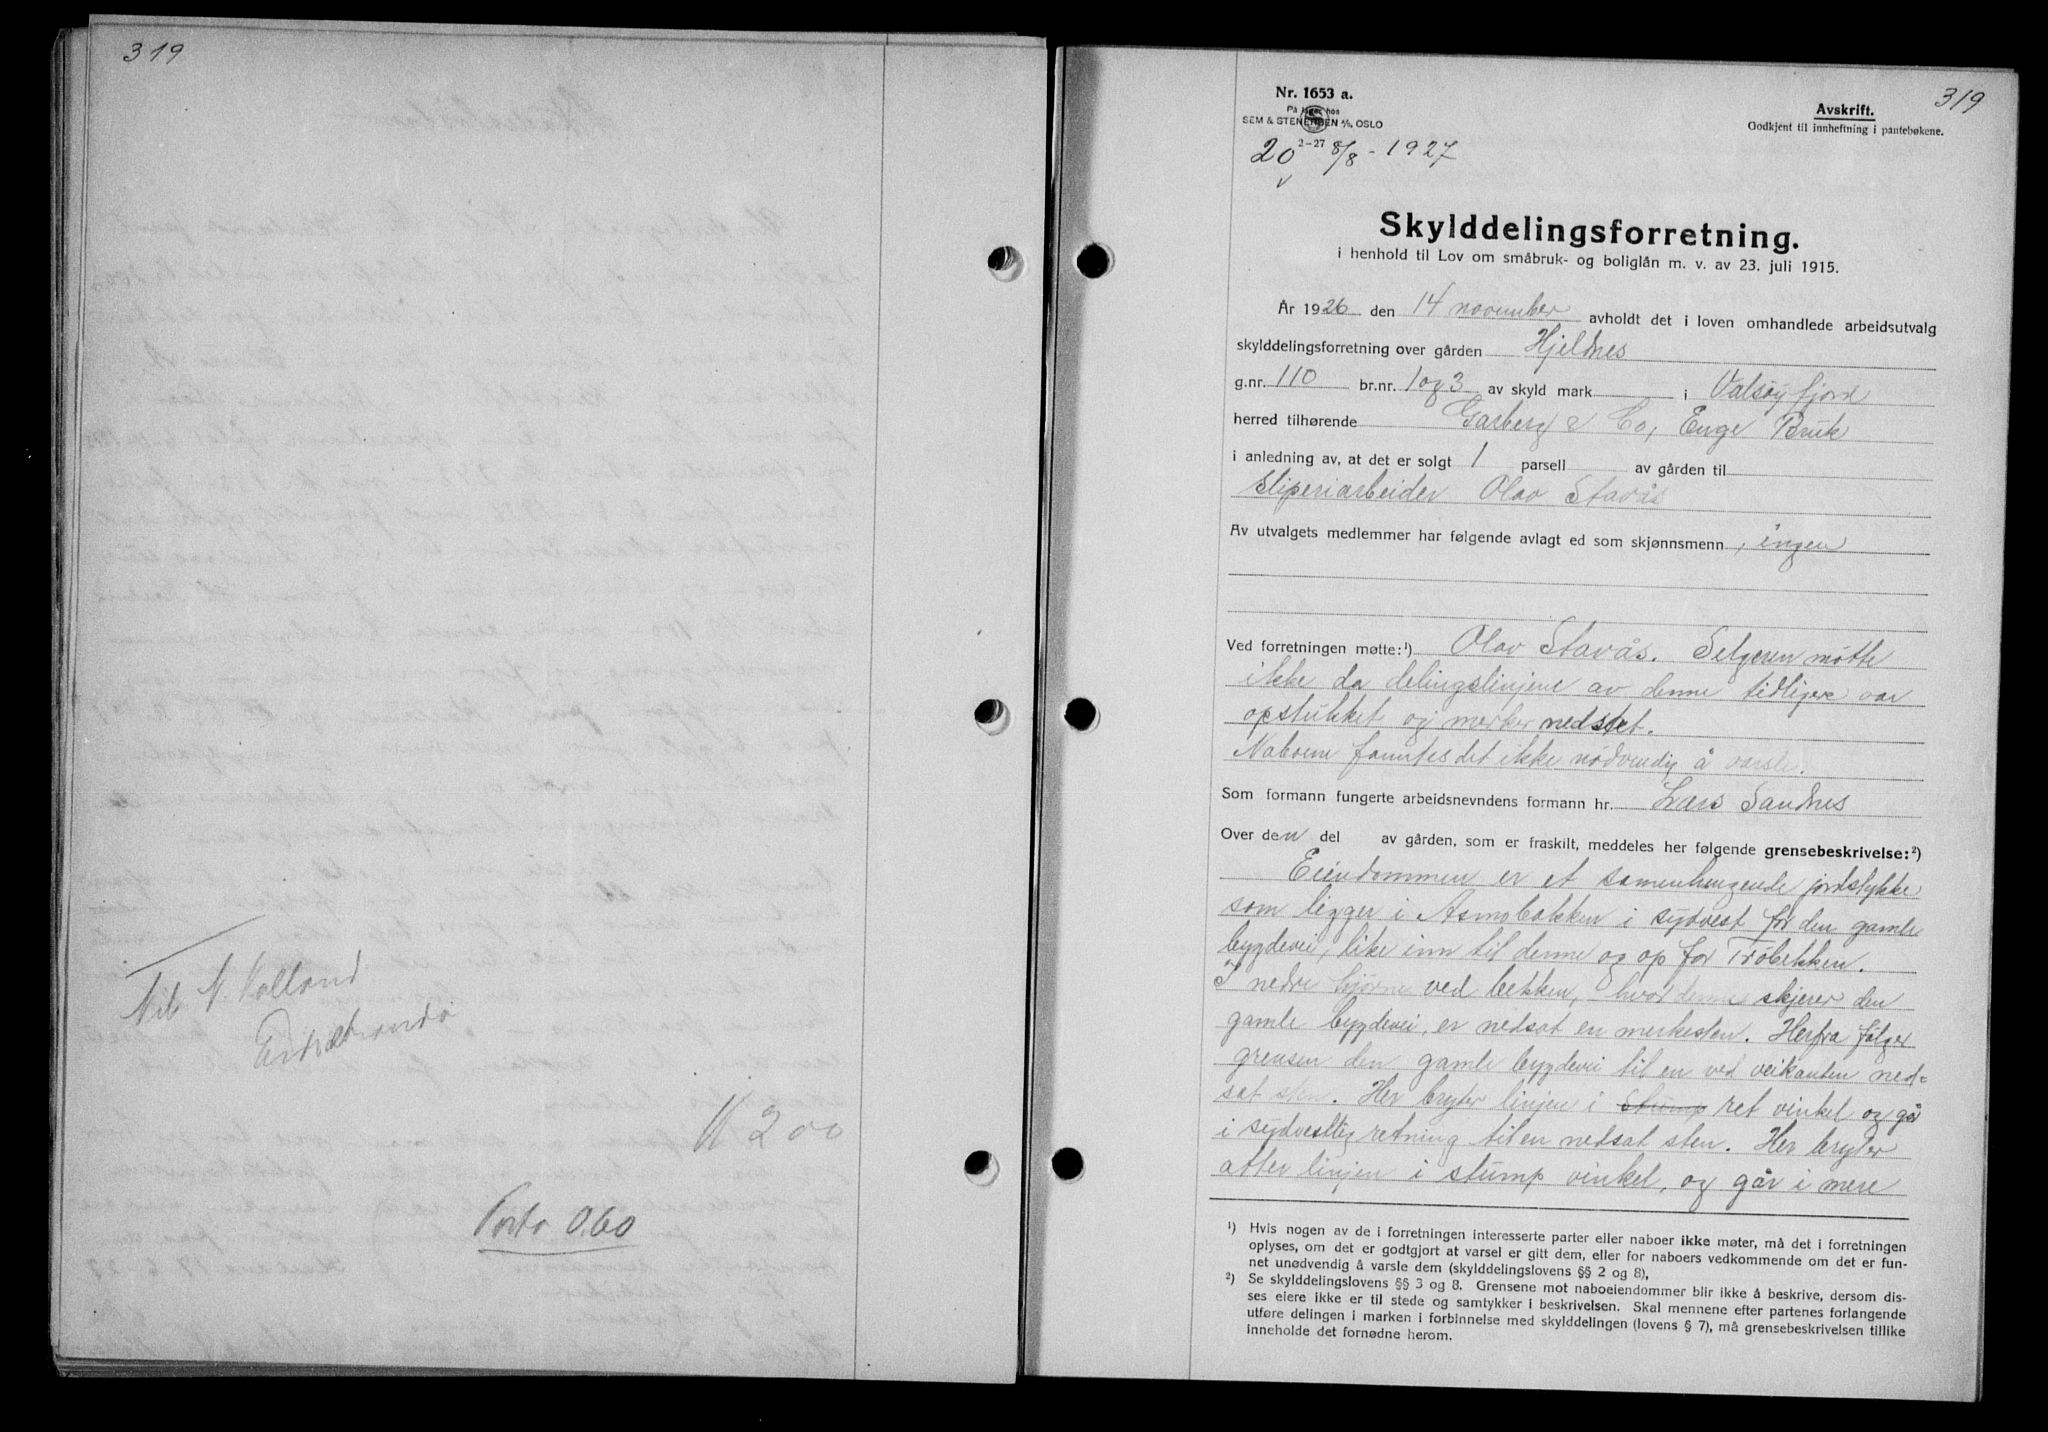 319
Nils N. Volland
K 2 00
Porto 0.60
319
Nr. 1653 a.
På lager hos
SEM & STENERSEN A/S, OSLO
2-27
Avskrift.
Godkjent til innheftning i pantebøkene.
20 8/8 - 1927
Skylddelingsforretning.
i henhold til Lov om småbruk- og boliglån m. v. av 23. juli 1915.
År 1926 den 14 november avholdt det i loven omhandlede arbeidsutvalg
skylddelingsforretning over gården Hjeldnes
g.nr. 110 br.nr. 1og3 av skyld mark i Valsøyfjord
herred tilhørende Garberg & Co, Enge Bruk
i anledning av, at det er solgt 1 parsell av gården til
Sliperiarbeider Olav Stavås
Av utvalgets medlemmer har følgende avlagt ed som skjønnsmenn, ingen
Ved forretningen møtte:¹) Olav Stavås. Selgeren møtte
ikke da delingslinjene av denne tidligere var
opstukket og merker nedsatt.
Naboene fantes det ikke nødvendig å varsle.
Som formann fungerte arbeidsnevndens formann hr. Lars Sandnes
Over den del av gården, som er fraskilt, meddeles her følgende grensebeskrivelse:²)
Eiendommen er et samenhengende jordstykke
som ligger i Asmobakken i sydvest for den gamle
bygdevei, like inn til denne og op for Trøbekken.
I nedre hjørne ved bekken, hvor denne skjerer den
gamle bygdevei, er nedsat en merkesten. Herfra følger
grensen den gamle bygdevei til en ved veikanten ned=
sat sten. Her bryter linjen i stump ret vinkel og går
i sydvestlig retning til en nedsat sten. Her bryter
atter linjen i stump vinkel, og går i mere
¹) Hvis nogen av de i forretningen interesserte parter eller naboer ikke møter, må det i forretningen
oplyses, om det er godtgjort at varsel er gitt dem, eller for naboers vedkommende om det er fun-
net unødvendig å varsle dem (skylddelingslovens §§ 2 og 8),
²) Se skylddelingslovens §§ 3 og 8. Grensene mot naboeiendommer blir ikke å beskrive, dersom dis-
ses eiere ikke er til stede og samtykker i beskrivelsen. Skal mennene efter partenes forlangende
utføre delingen i marken i forbinnelse med skylddelingen (lovens § 7), må grensebeskrivelsen tillike
inneholde det fornødne herom.